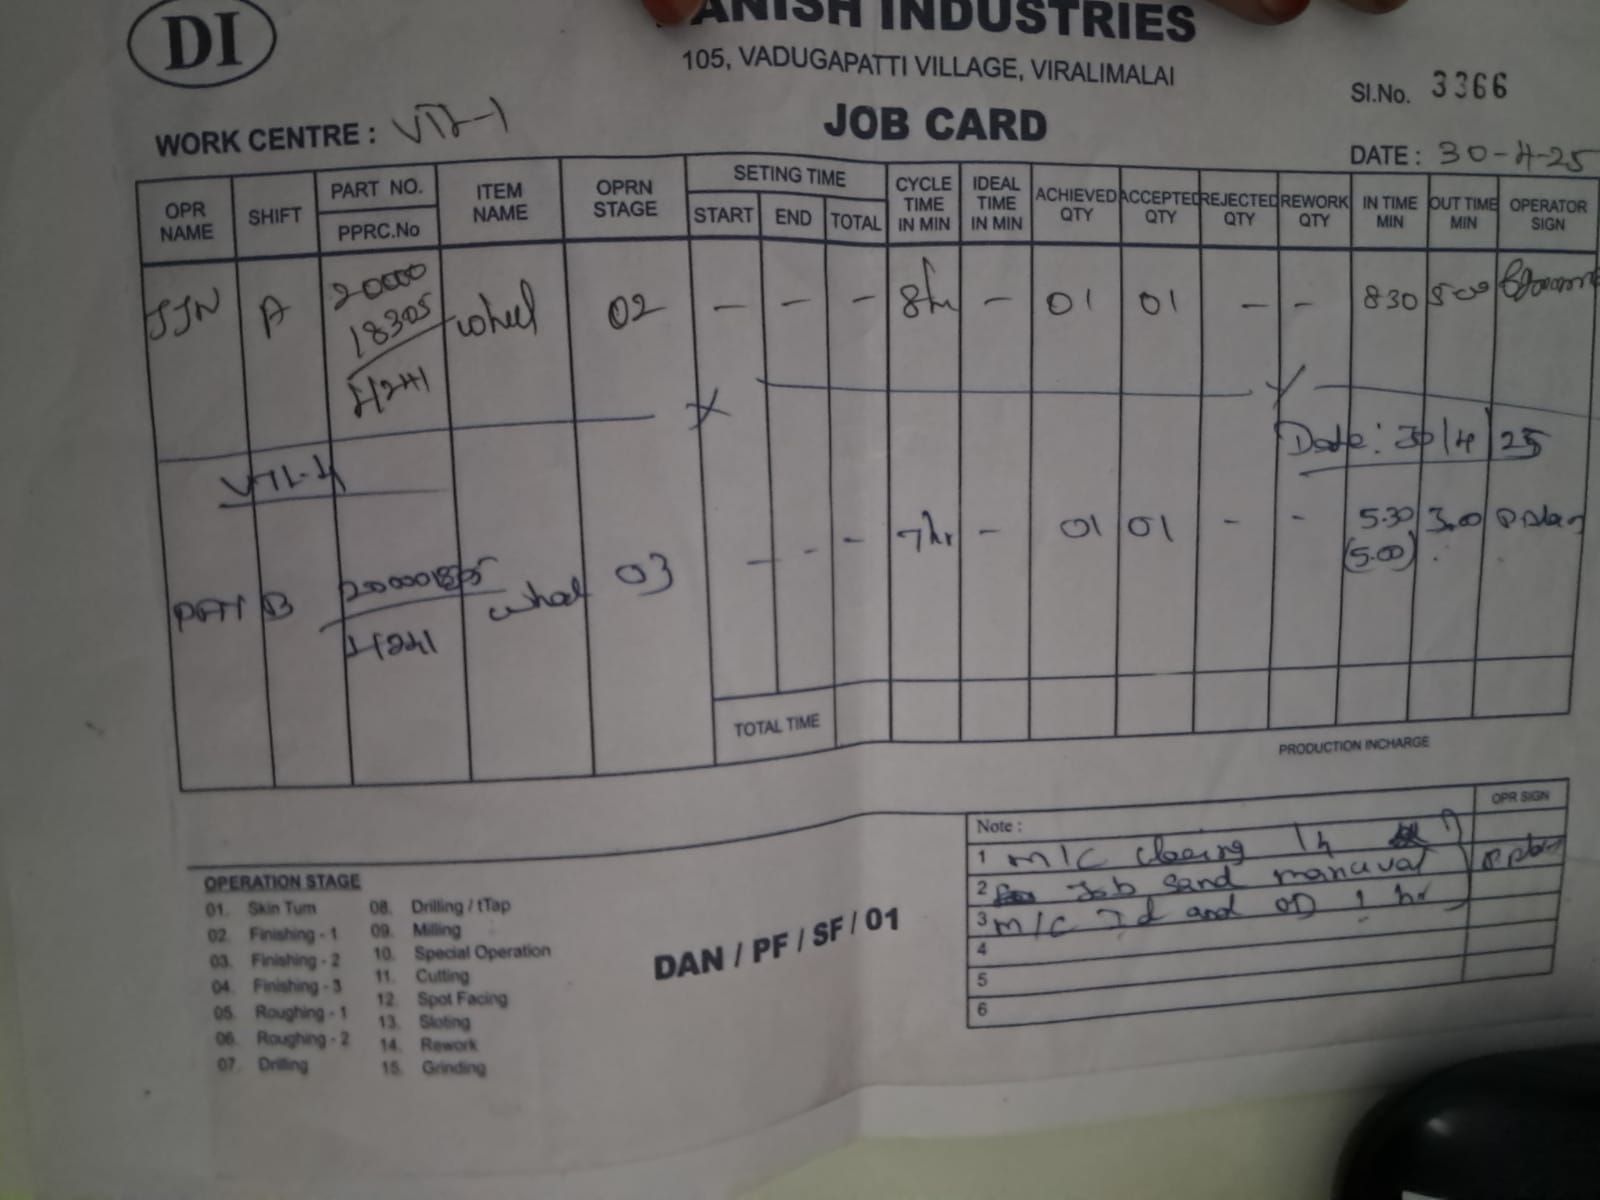 DI
ANISH INDUSTRIES
105, VADUGAPATTI VILLAGE, VIRALIMALAI
SI.No. 3366
JOB CARD
WORK CENTRE : VTL-1
DATE : 30-4-25
OPR NAME SHIFT PART NO. PPRC.No ITEM NAME OPRN STAGE SETING TIME START END TOTAL CYCLE TIME IN MIN IDEAL TIME IN MIN ACHIEVED QTY ACCEPTED QTY REJECTED QTY REWORK QTY IN TIME MIN OUT TIME MIN OPERATOR SIGN
A 20000 wheel 02 - - - 8hr - 01 01 - - 830 500
18305
4241
Date: 30/4/25
VTL-4
B 2000018305 wheel 03 - - - 7hr - 01 01 - - 5.30 3.00
4241 (5.00)
TOTAL TIME
PRODUCTION INCHARGE
OPERATION STAGE
01. Skin Turn
02. Finishing - 1
03. Finishing - 2
04. Finishing - 3
05. Roughing - 1
06. Roughing - 2
07. Drilling
08. Drilling / tTap
09. Milling
10. Special Operation
11. Cutting
12. Spot Facing
13. Sloting
14. Rework
15. Grinding
DAN / PF / SF / 01
Note : OPR SIGN
1 m/c 1h
2 Job sand
3 m/c Id and OD 1 hr
4
5
6